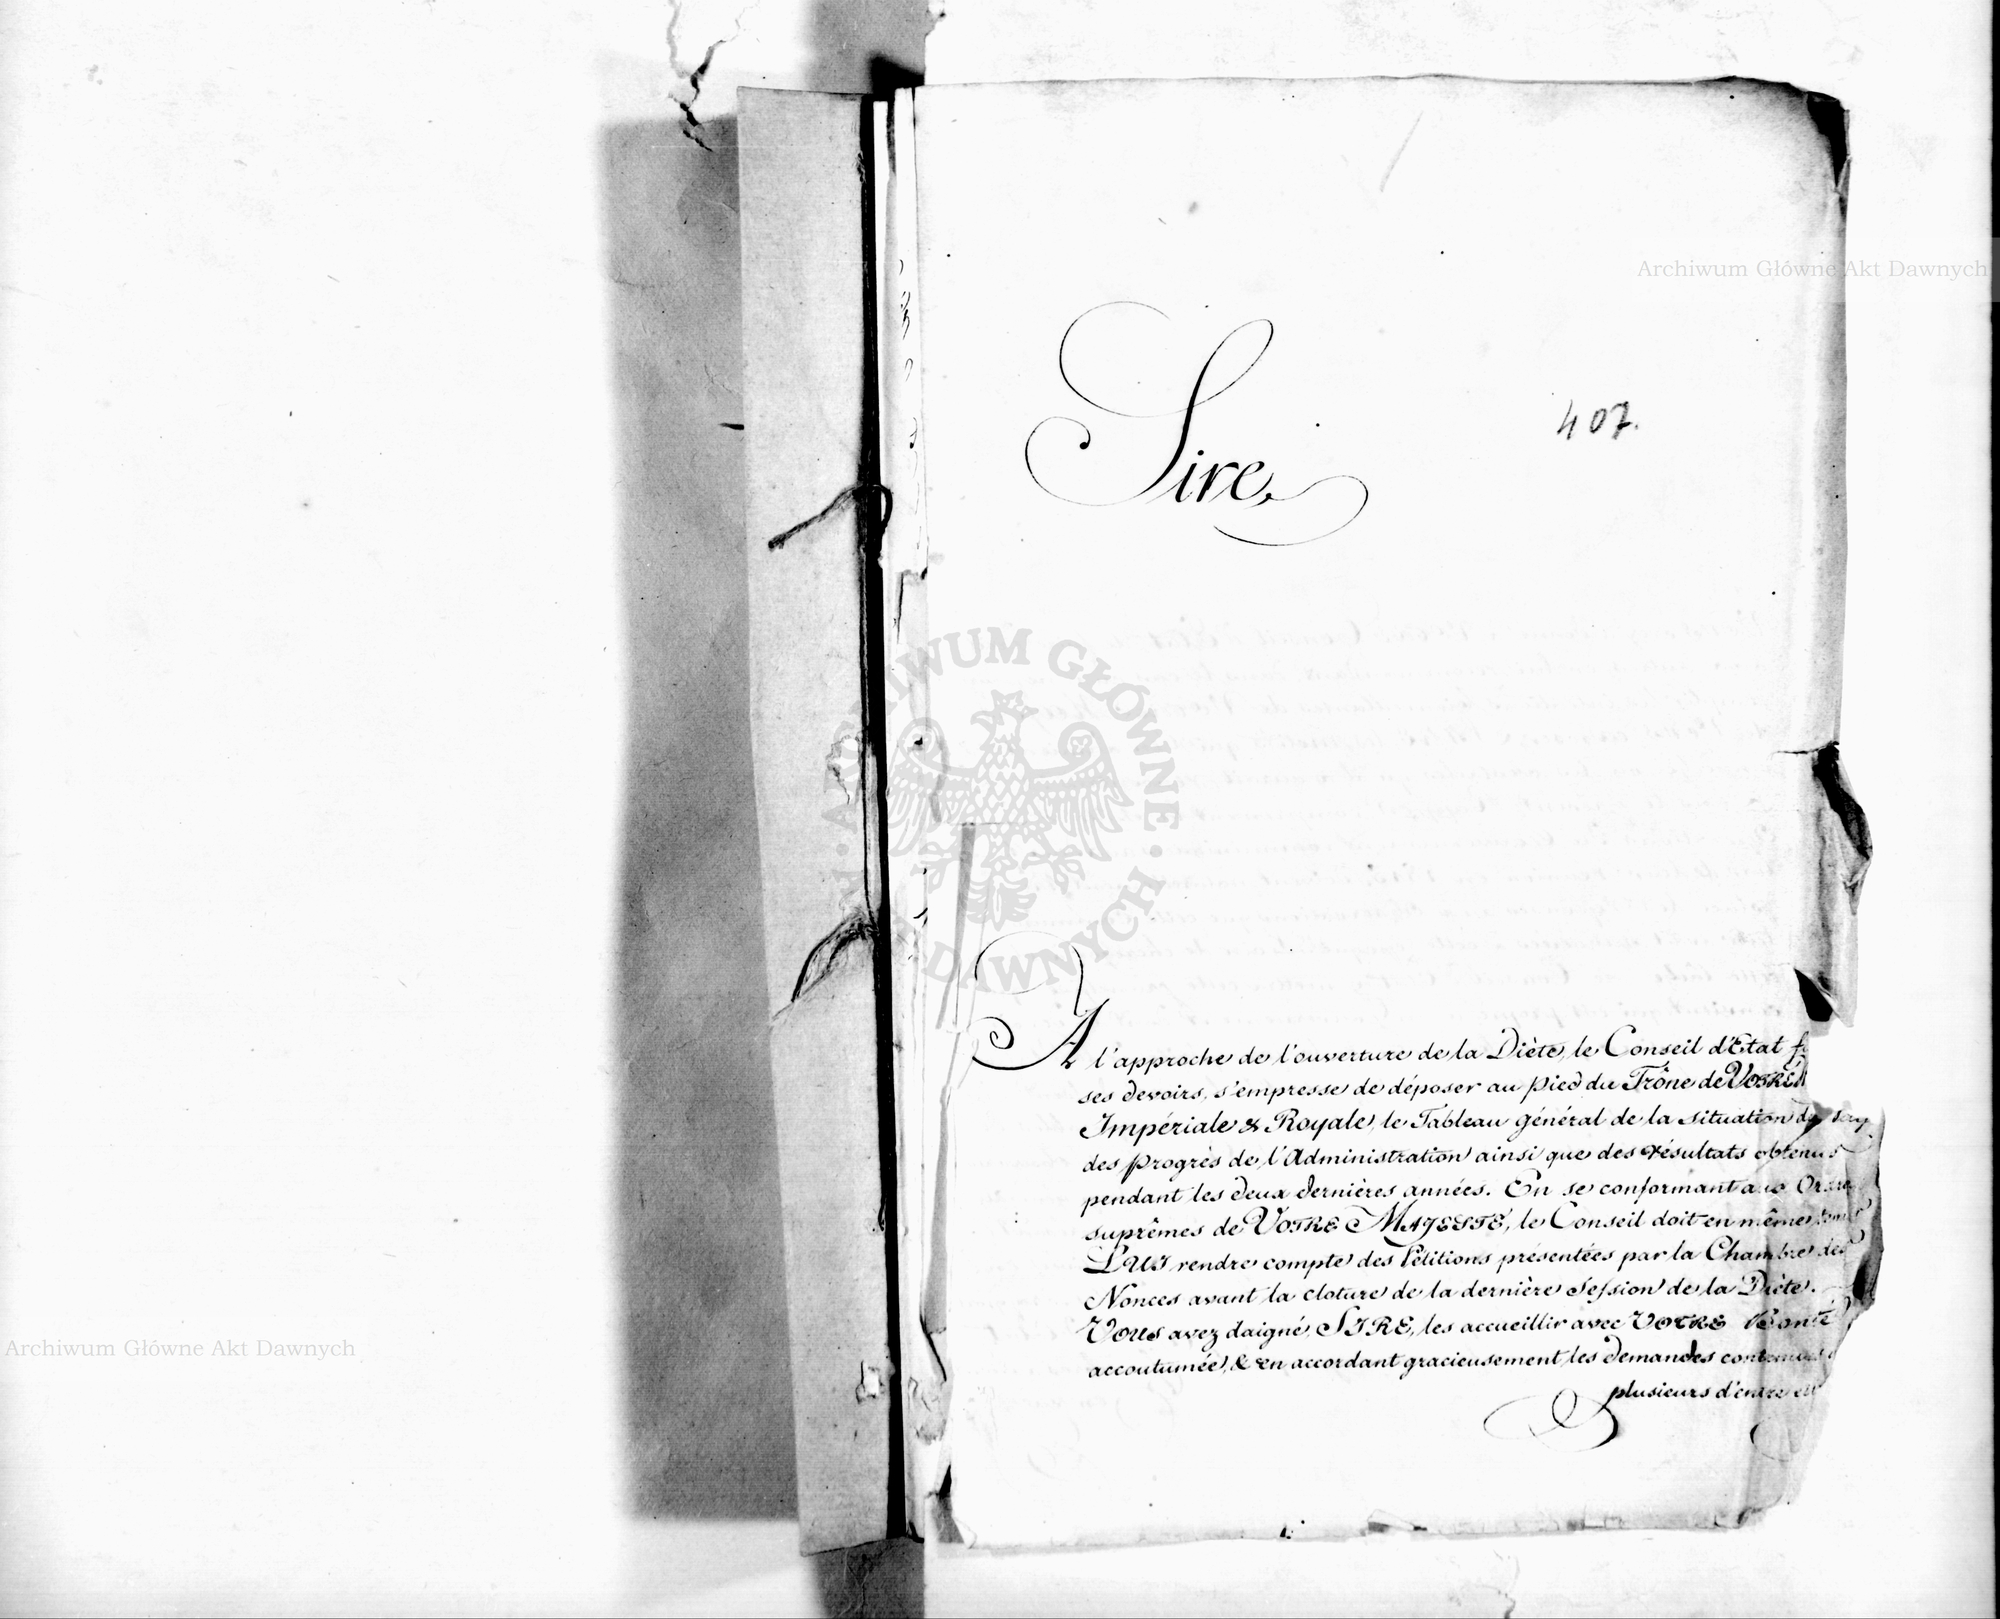 Sire,
407.
A l'approche de l'ouverture de la Diète, le Conseil d'Etat
ses devoirs, s'empresse de déposer au pied du Trône de VOTRE
Impériale & Royale, le Tableau général de la situation du
des progrès de l'Administration ainsi que des résultats obtenus
pendant les deux dernières années. En se conformant aux Ordres
suprêmes de VOTRE MAJESTÉ, le Conseil doit en même tems
LUI rendre compte des Pétitions présentées par la Chambre des
Nonces avant la cloture de la dernière Session de la Diète.
VOUS avez daigné, SIRE, les accueillir avec VOTRE Bonté
accoutumée, & en accordant gracieusement les demandes contenues
plusieurs d'entre
Archiwum Główne Akt Dawnych
Archiwum Główne Akt Dawnych
ARCHIWUM GŁÓWNE AKT DAWNYCH